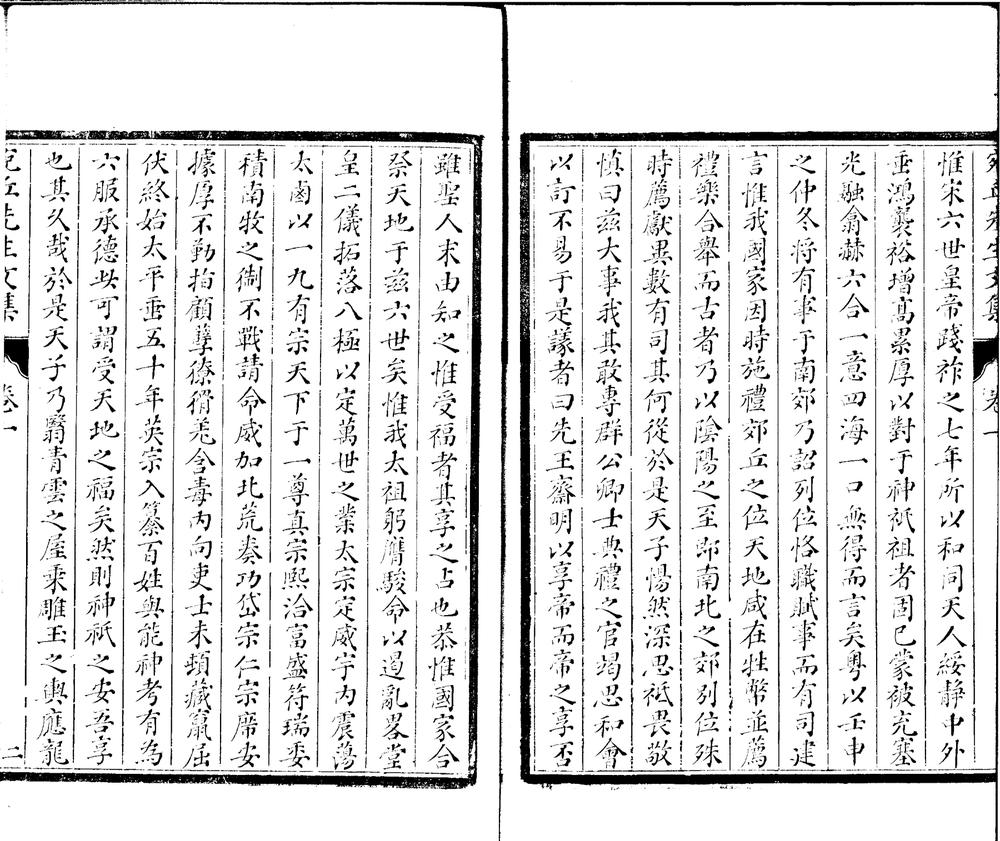 宛丘先生文集 卷一
惟宋六世皇帝踐祚之七年所以和同天人綏靜中外
垂鴻襲裕增高累厚以對于神祇祖者固已蒙被充塞
光融翕赫六合一意四海一口無得而言矣粵以壬申
之仲冬将有事于南郊乃詔列位恪職賦事而有司建
言惟我國家因時施禮郊丘之位天地咸在牲幣並薦
禮樂合舉而古者乃以陰陽之至即南北之郊列位殊
時薦獻異數有司其何從於是天子惕然深思祗畏敬
慎曰兹大事我其敢專群公卿士典禮之官竭思和會
以訂不易于是議者曰先王齋明以享帝而帝之享否
雖聖人末由知之惟受福者其享之占也恭惟國家合
祭天地于兹六世矣惟我太祖躬膺駿命以遏亂畧堂
皇二儀拓落八極以定萬世之業太宗定威宇内震蕩
太鹵以一九有宗天下于一尊真宗熙洽富盛符瑞委
積南牧之衝不戰請命威加北荒奏功岱宗仁宗席安
據厚不勤指顧孽獠猾羗含毒内向吏士未頓藏竄屈
伏終始太平垂五十年英宗入纂百姓與能神考有為
六服承德此可謂受天地之福矣然則神祇之安吾享
也其久哉於是天子乃翳青雲之屋乘雕玉之輿應龍
宛丘先生文集 卷一 二